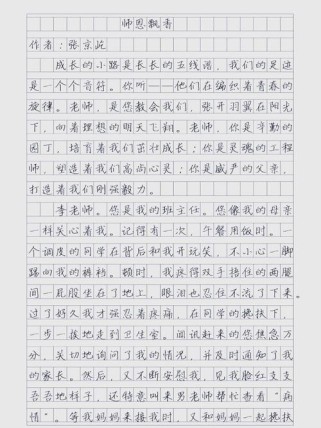 师恩飘香
作者:张京沇
成长的小路是长长的五线谱,我们的足迹
是一个个音符。你听——他们在编织着青春的
旋律。老师,是您教会我们,张开羽翼在阳光
下,向着理想的明天飞翔。老师,你是辛勤的
园丁,培育着我们茁壮成长;你是灵魂的工程
师,塑造着我们高尚心灵;你是威严的父亲,
打造着我们刚强毅力。
李老师。您是我的班主任。您像我的母亲
一样关心着我。记得有一次,午餐用饭时。一
个调皮的同学在背后和我开玩笑,不小心一脚
踢向我的裤裆。顿时,我疼得双手捂住的两腿
间一屁股坐在了地上,眼泪也忍住不流了下来。
过了好久我才强忍着疼,在同学的搀扶下,
一步一挨地走到卫生室。闻讯赶来的您焦急万
分,关切地询问了我的情况,并及时通知了我
的家长。然后,又不断安慰我,见我脸红支支
吾吾地样子,还特意叫来男老师帮忙查看“病
情”。等我妈妈来接我时,又和妈妈一起搀扶